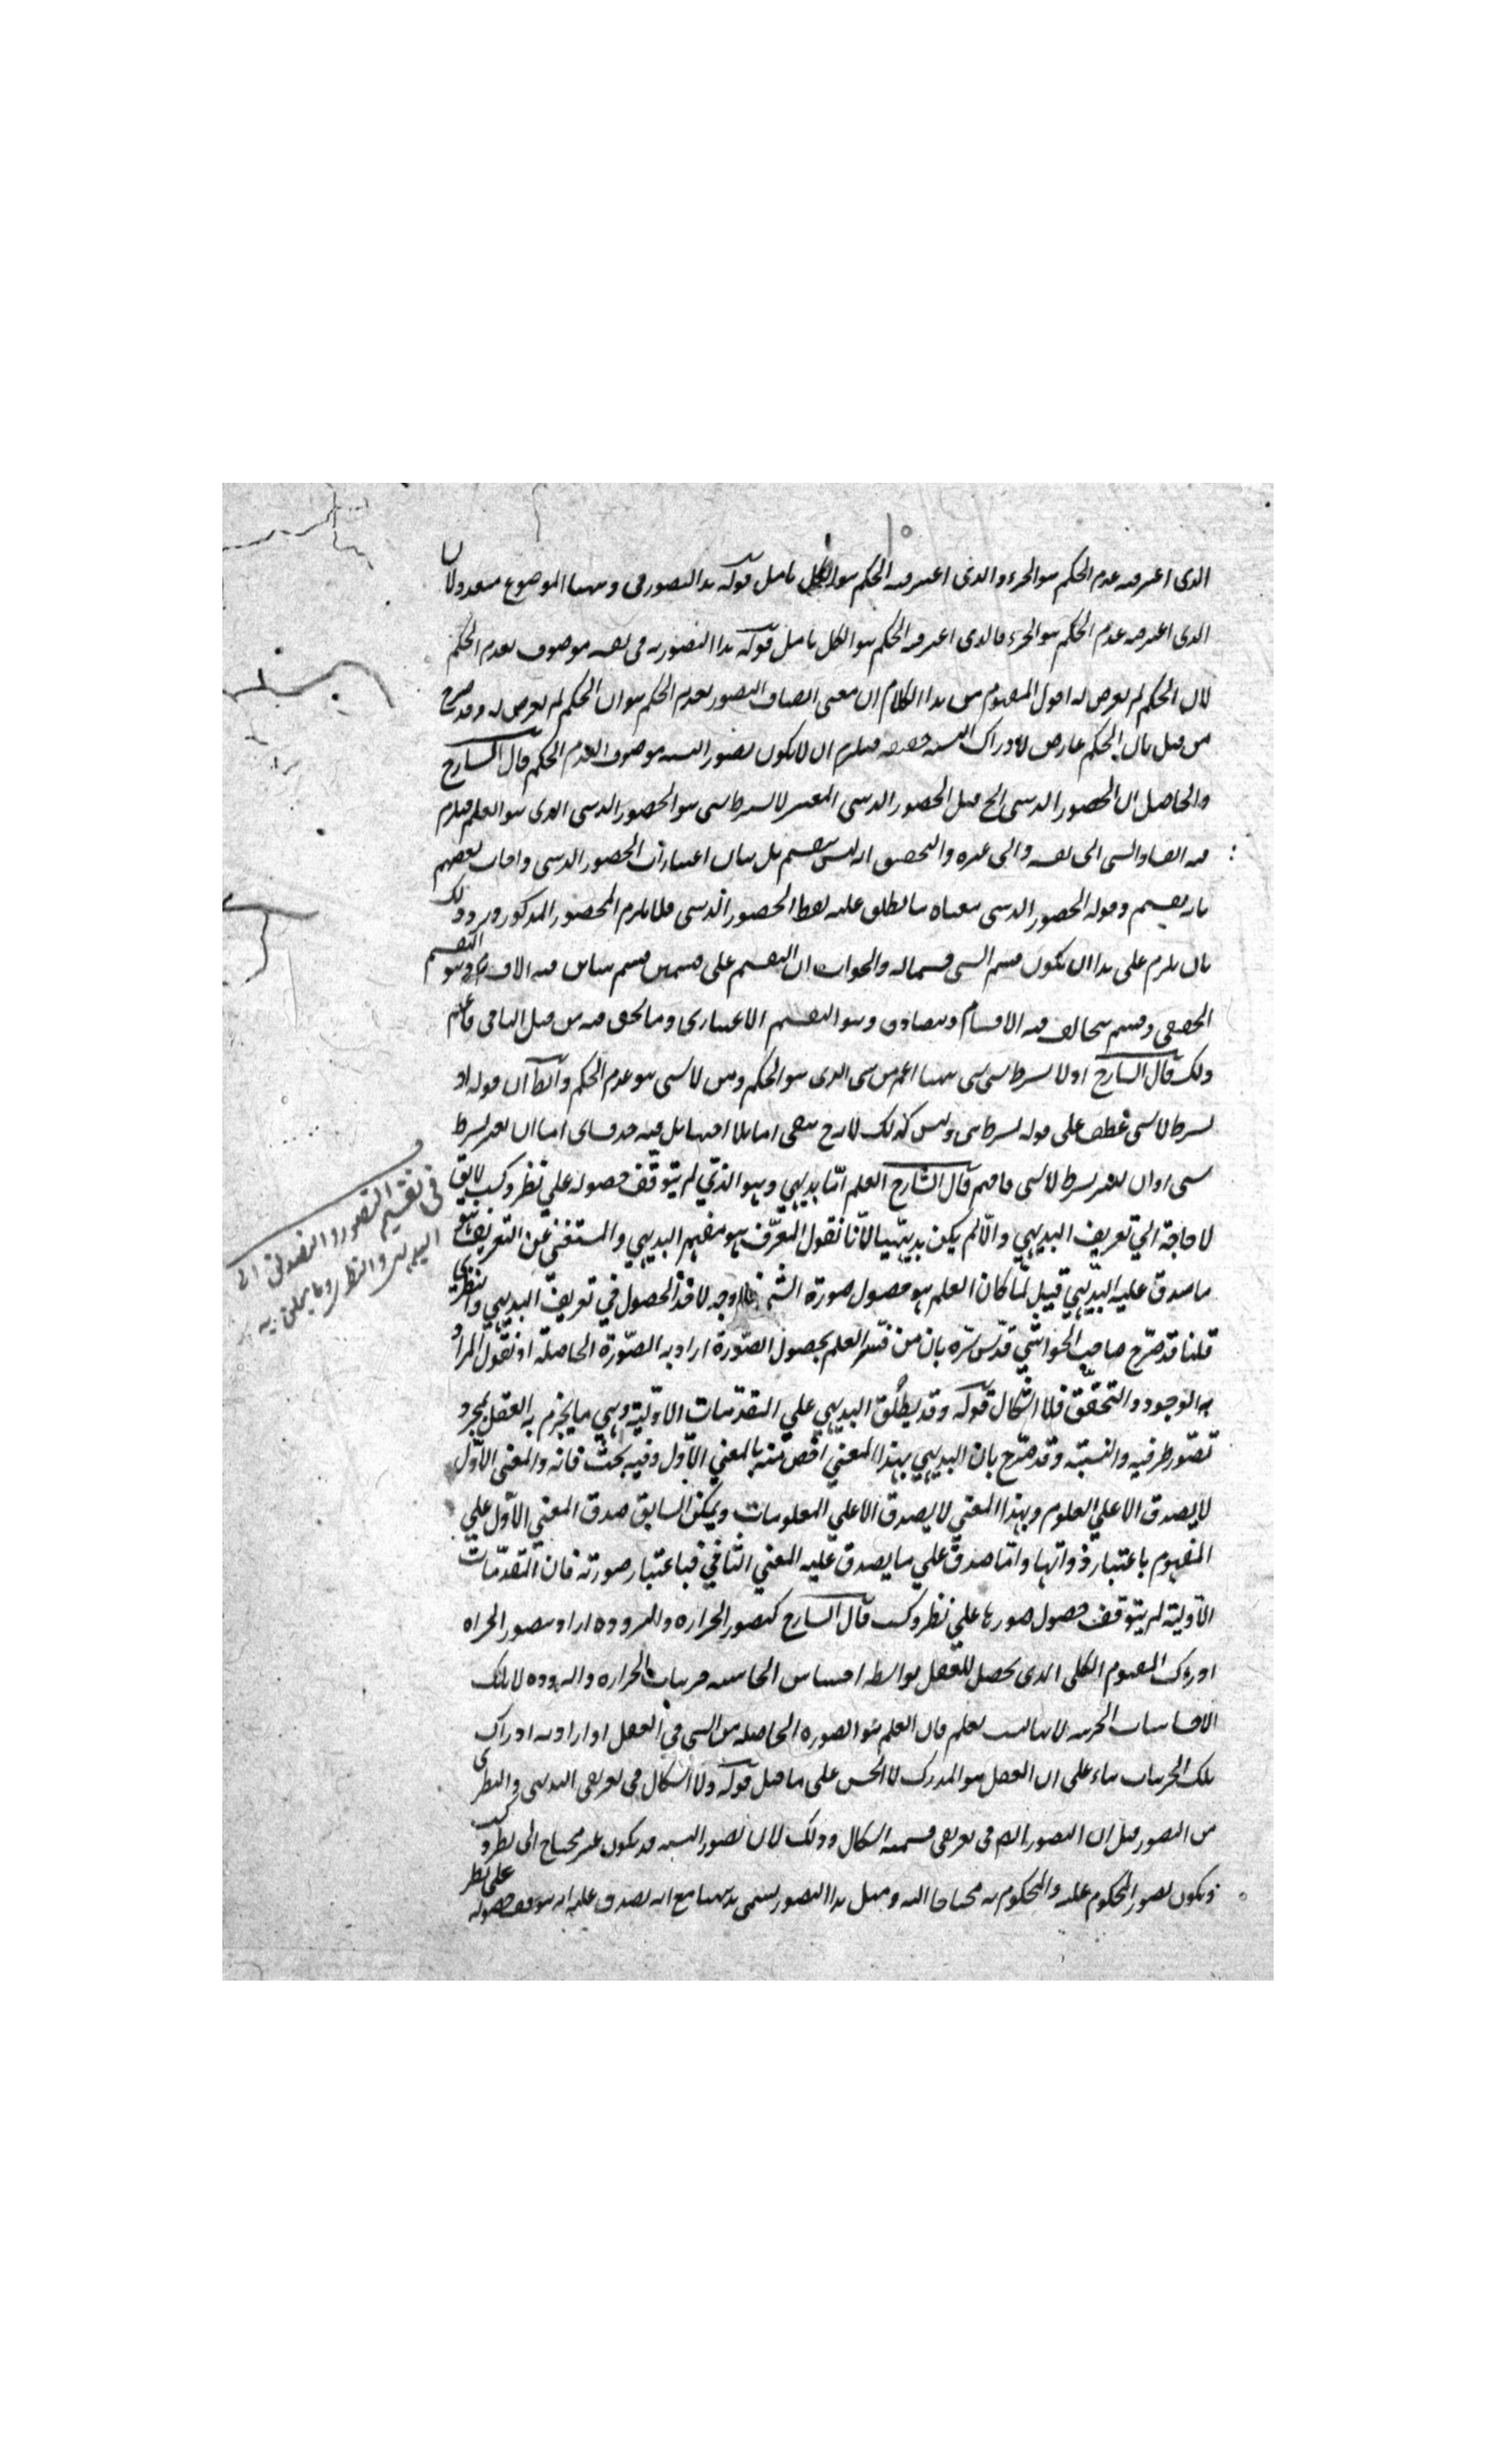 الذى اعتبر فيه عدم الحكم هو الجزء والذى اعتبر فيه الحكم هو الكل تامل قوله هذا التصور فى وههنا الموضوع متعدد لان
الذى اعتبر فيه عدم الحكم هو الجزء فالذى اعتبر فيه الحكم هو الكل تامل قوله هذا التصور به فى نفسه موصوف بعدم الحكم
لان الحكم لم يعرض له اقول المفهوم من هذا الكلام ان معنى اتصاف التصور بعدم الحكم هو ان الحكم لم يعرض له وقد صرح
من قبل بان الحكم عارض لادراك النسبة حقيقة فيلزم ان لا يكون تصور النسبة موصوفا بعدم الحكم قال الشارح
والحاصل ان الحضور الذهنى الخ قيل الحضور الذهنى المعتبر لا بشرط شى هو الحضور الذهنى الذى هو العلم فيلزم
فيه انقسام الشى الى نفسه والى غيره والتحقيق انه ليس بتقسيم بل بيان اعتبارات الحضور الذهنى واجاب بعضهم
بانه تقسيم وقوله الحضور الذهنى معناه ما يطلق عليه لفظ الحضور الذهنى فلا يلزم المحضور المذكور ورد ذلك
بان يلزم على هذا ان يكون قسم الشى قسيما له والجواب ان التقسيم على قسمين قسم يباين فيه الاقسام وهو التقسيم
الحقيقى وقسم يتخالف فيه الاقسام ويتصادق وهو التقسيم الاعتبارى وما نحن فيه من قبيل الثانى فاعلم
ذلك قال الشارح اولا بشرط شى شى ههنا اعم من شى الذى هو الحكم ومن لا شى هو عدم الحكم وايضا ان قوله او
بشرط لا شى عطف على قوله بشرط شى وليس كذلك لانه ح يبقى اما بلا اختها بل فيه حذف اى اما ان يعتبر بشرط
شى او ان يعتبر بشرط لا شى فافهم قال الشارح العلم امّا بديهي وهو الذي لم يتوقف حصوله علي نظر وكسب لا يق
لا حاجة الي تعريف البديهي والّا لم يكن بديهيا لأنا نقول المعرَّف هو مفهوم البديهي والمستغني عن التعريف هو
ما صدق عليه البديهي قيل لما كان العلم هو حصول صورة الشئ فلا وجه لاخذ الحصول في تعريف البديهي والنظرى
قلنا قد صرّح صاحب الحواشي قدّس سرّه بان من فسّر العلم بحصول الصّورة اراد به الصّورة الحاصلة او نقول المراد
به الوجود والتحقّق فلا اشكال قوله وقد يطلق البديهي علي المقدّمات الاوّلية وهي ما يجزم به العقل بمجرد
تصّور طرفيه والنسبة وقد صرّح بان البديهي بهذا المعني اخص منه بالمعني الاوّل وفيه بحث فانه والمعنى الاوّل
لا يصدق الا علي العلوم وبهذا المعني لا يصدق الا علي المعلومات ويمكن السابق صدق المعني الاوّل علي
المفهوم باعتبار ذواتها وامّا صدق علي ما يصدق عليه المعني الثاني فباعتبار صورته فان المقدّمات
الاوّلية لم يتوقف حصول صورها علي نظر وكسب قال الشارح كتصور الحرارة والبرودة اراد بتصور الحراره
ادراك المفهوم الكلى الذى يحصل للعقل بواسطة احساس الحاسة جزييات الحرارة والبرودة لا تلك
الاحساسات الجزيية لانها ليست بعلم فان العلم هو الصورة الحاصلة من الشى فى العقل او اراد به ادراك
تلك الجزييات بناء على ان العقل هو المدرك لا الحس على ما قيل قوله ولا اشكال فى تعريفى البديهى والنظرى
من التصور قيل ان التصور ايضا فى تعريفى قسميه اشكال وذلك لان تصور النسبة قد يكون غير محتاج الى نظر وكسب
ويكون تصور المحكوم عليه والمحكوم به محتاجا اليه ومثل هذا التصور يسمى بديهيا مع انه يصدق عليه انه يتوقف حصوله على نظر
فى تقسيم التصور والتصديق الى
البديهى والنظرى وما يتعلق به